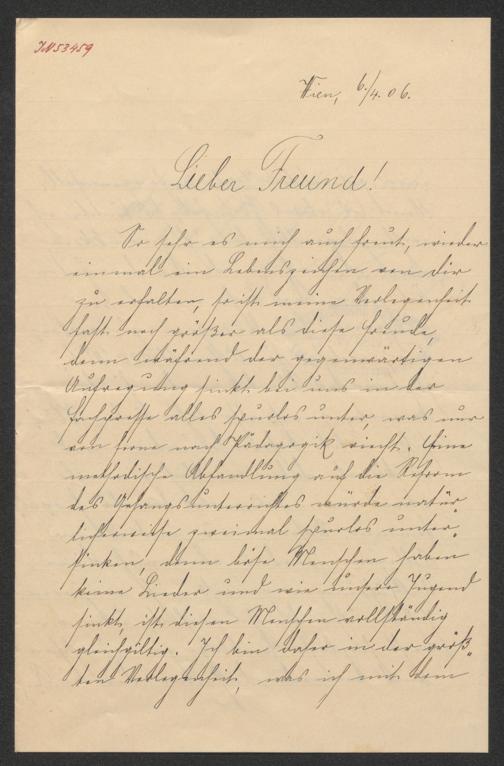 IN 53459
Wien, 6./4. 06.
Lieber Freund!
So sehr es mich auch freut, wieder
einmal ein Lebenszeichen von dir
zu erhalten, so ist meine Verlegenheit
fast noch größer als diese Freude,
denn während der gegenwärtigen
Aufregung sinkt bei uns in der
Fachpresse alles spurlos unter, was nur
von ferne nach Pädagogik riecht. Eine
methodische Abhandlung auf die Reform
des Gesangsunterrichtes würde natür-
licherweise zweimal spurlos unter-
sinken, denn böse Menschen haben
keine Lieder und wie unsere Jugend
singt, ist diesen Menschen vollständig
gleichgiltig. Ich bin daher in der größ-
ten Verlegenheit, was ich mit dem